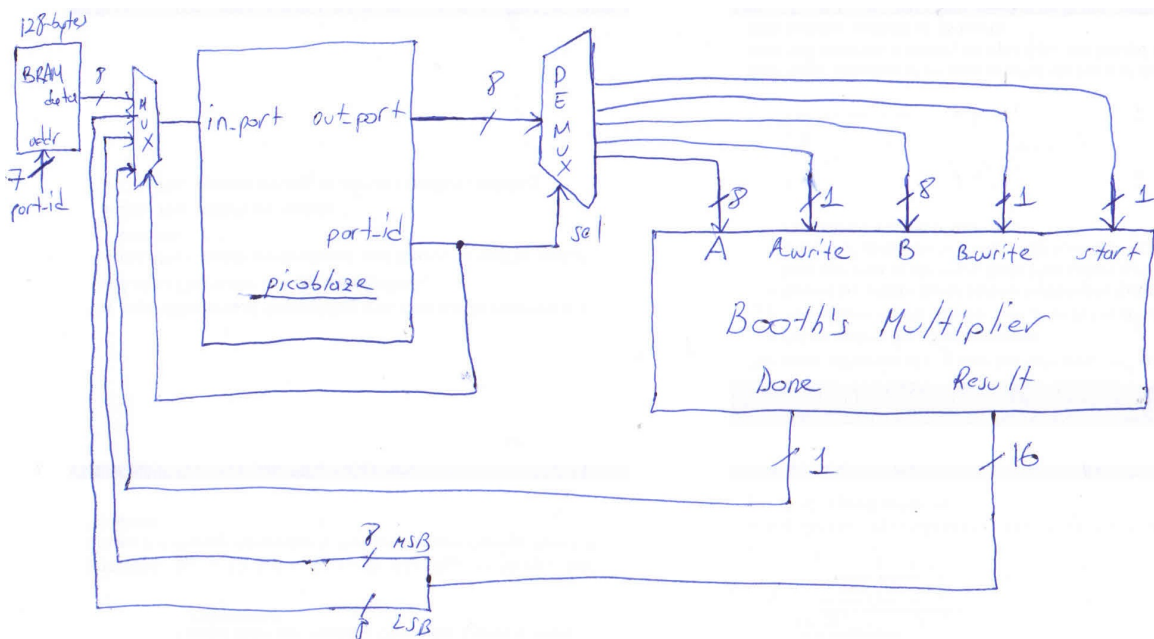 128-bytes
BRAM
data
addr
8
7
port-id
MUX
in_port
out_port
port_id
picoblaze
8
DEMUX
sel
8
1
8
1
1
A
Awrite
B
Bwrite
start
Booth's Multiplier
Done
Result
1
16
8
MSB
8
LSB